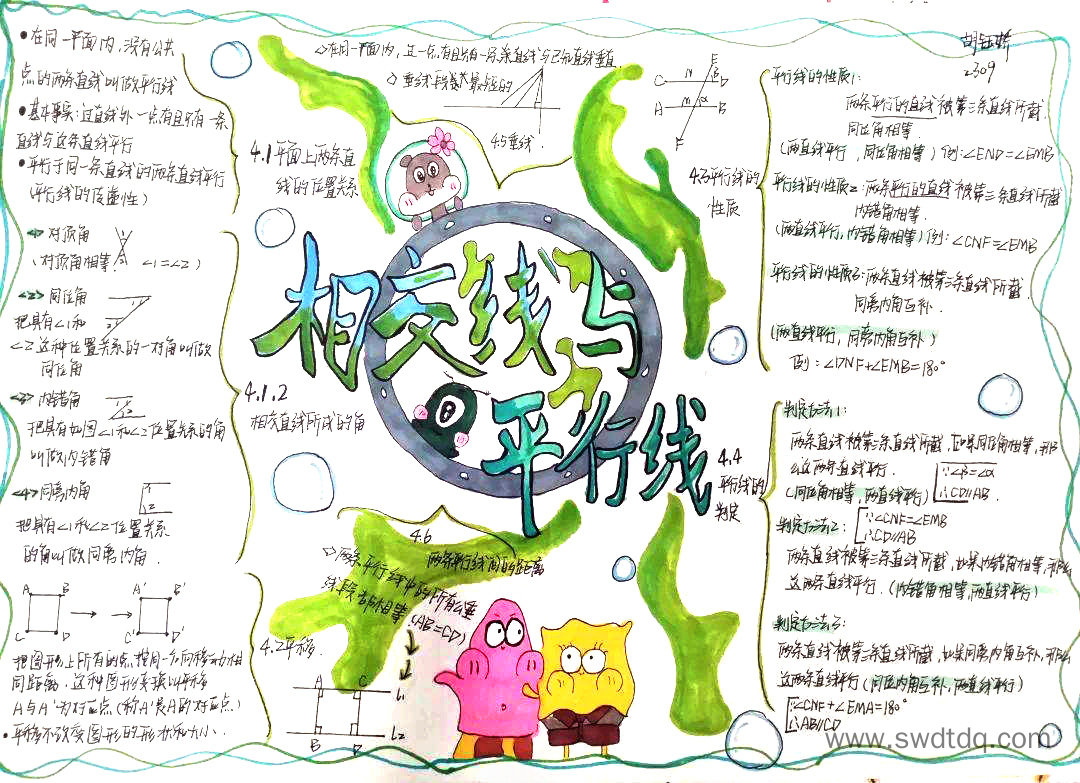 相交线与
平行线
胡钰娇
2309
4.1平面上两条直
线的位置关系
•在同一平面内,没有公共
点的两条直线叫做平行线
•基本事实:过直线外一点有且只有一条
直线与这条直线平行
•平行于同一条直线的两条直线平行
(平行线的传递性)
4.1.2
相交直线所成的角
<1>对顶角
(对顶角相等. ∠1=∠2)
<2>同位角
把具有∠1和
∠2这种位置关系的一对角叫做
同位角
<3>内错角
把具有如图∠1和∠2位置关系的角
叫做内错角
<4>同旁内角
把具有∠1和∠2位置关系
的角叫做同旁内角.
4.2平移.
A B A' B'
C D C' D'
把图形上所有的点,按同一方向移动相
同距离,这种图形变换叫平移
A与A'为对应点(称A'是A的对应点)
•平移不改变图形的形状和大小.
在同一平面内,过一点有且只有一条直线与已知直线垂直
垂线段是最短的
4.5垂线.
E
C N D
A M α B
F
4.3平行线的
性质
平行线的性质1:
两条平行的直线被第三条直线所截,
同位角相等.
(两直线平行,同位角相等)例:∠END=∠EMB
平行线的性质2:两条平行的直线被第三条直线所截
内错角相等.
(两直线平行,内错角相等)例:∠CNF=∠EMB
平行线的性质3:两条直线被第三条直线所截
同旁内角互补.
(两直线平行,同旁内角互补)
例:∠DNF+∠EMB=180°
4.4
平行线的
判定
判定方法1:
两条直线被第三条直线所截,如果同位角相等,那
么这两条直线平行.
(同位角相等,两直线平行)
∵∠β=∠α
∴CD//AB.
判定方法2:
∵∠CNF=∠EMB
∴CD//AB
两条直线被第三条直线所截,如果内错角相等,那么
这两条直线平行.(内错角相等,两直线平行)
判定方法3:
两条直线被第三条直线所截,如果同旁内角互补,那么
这两条直线平行(同位内角互补,两直线平行)
∵∠CNF+∠EMA=180°
∴AB//CD
4.6
两条平行线间的距离
两条平行线中的所有公垂
线段都相等.
(AB=CD)
A C L1
B D L2
www.swdtdq.com